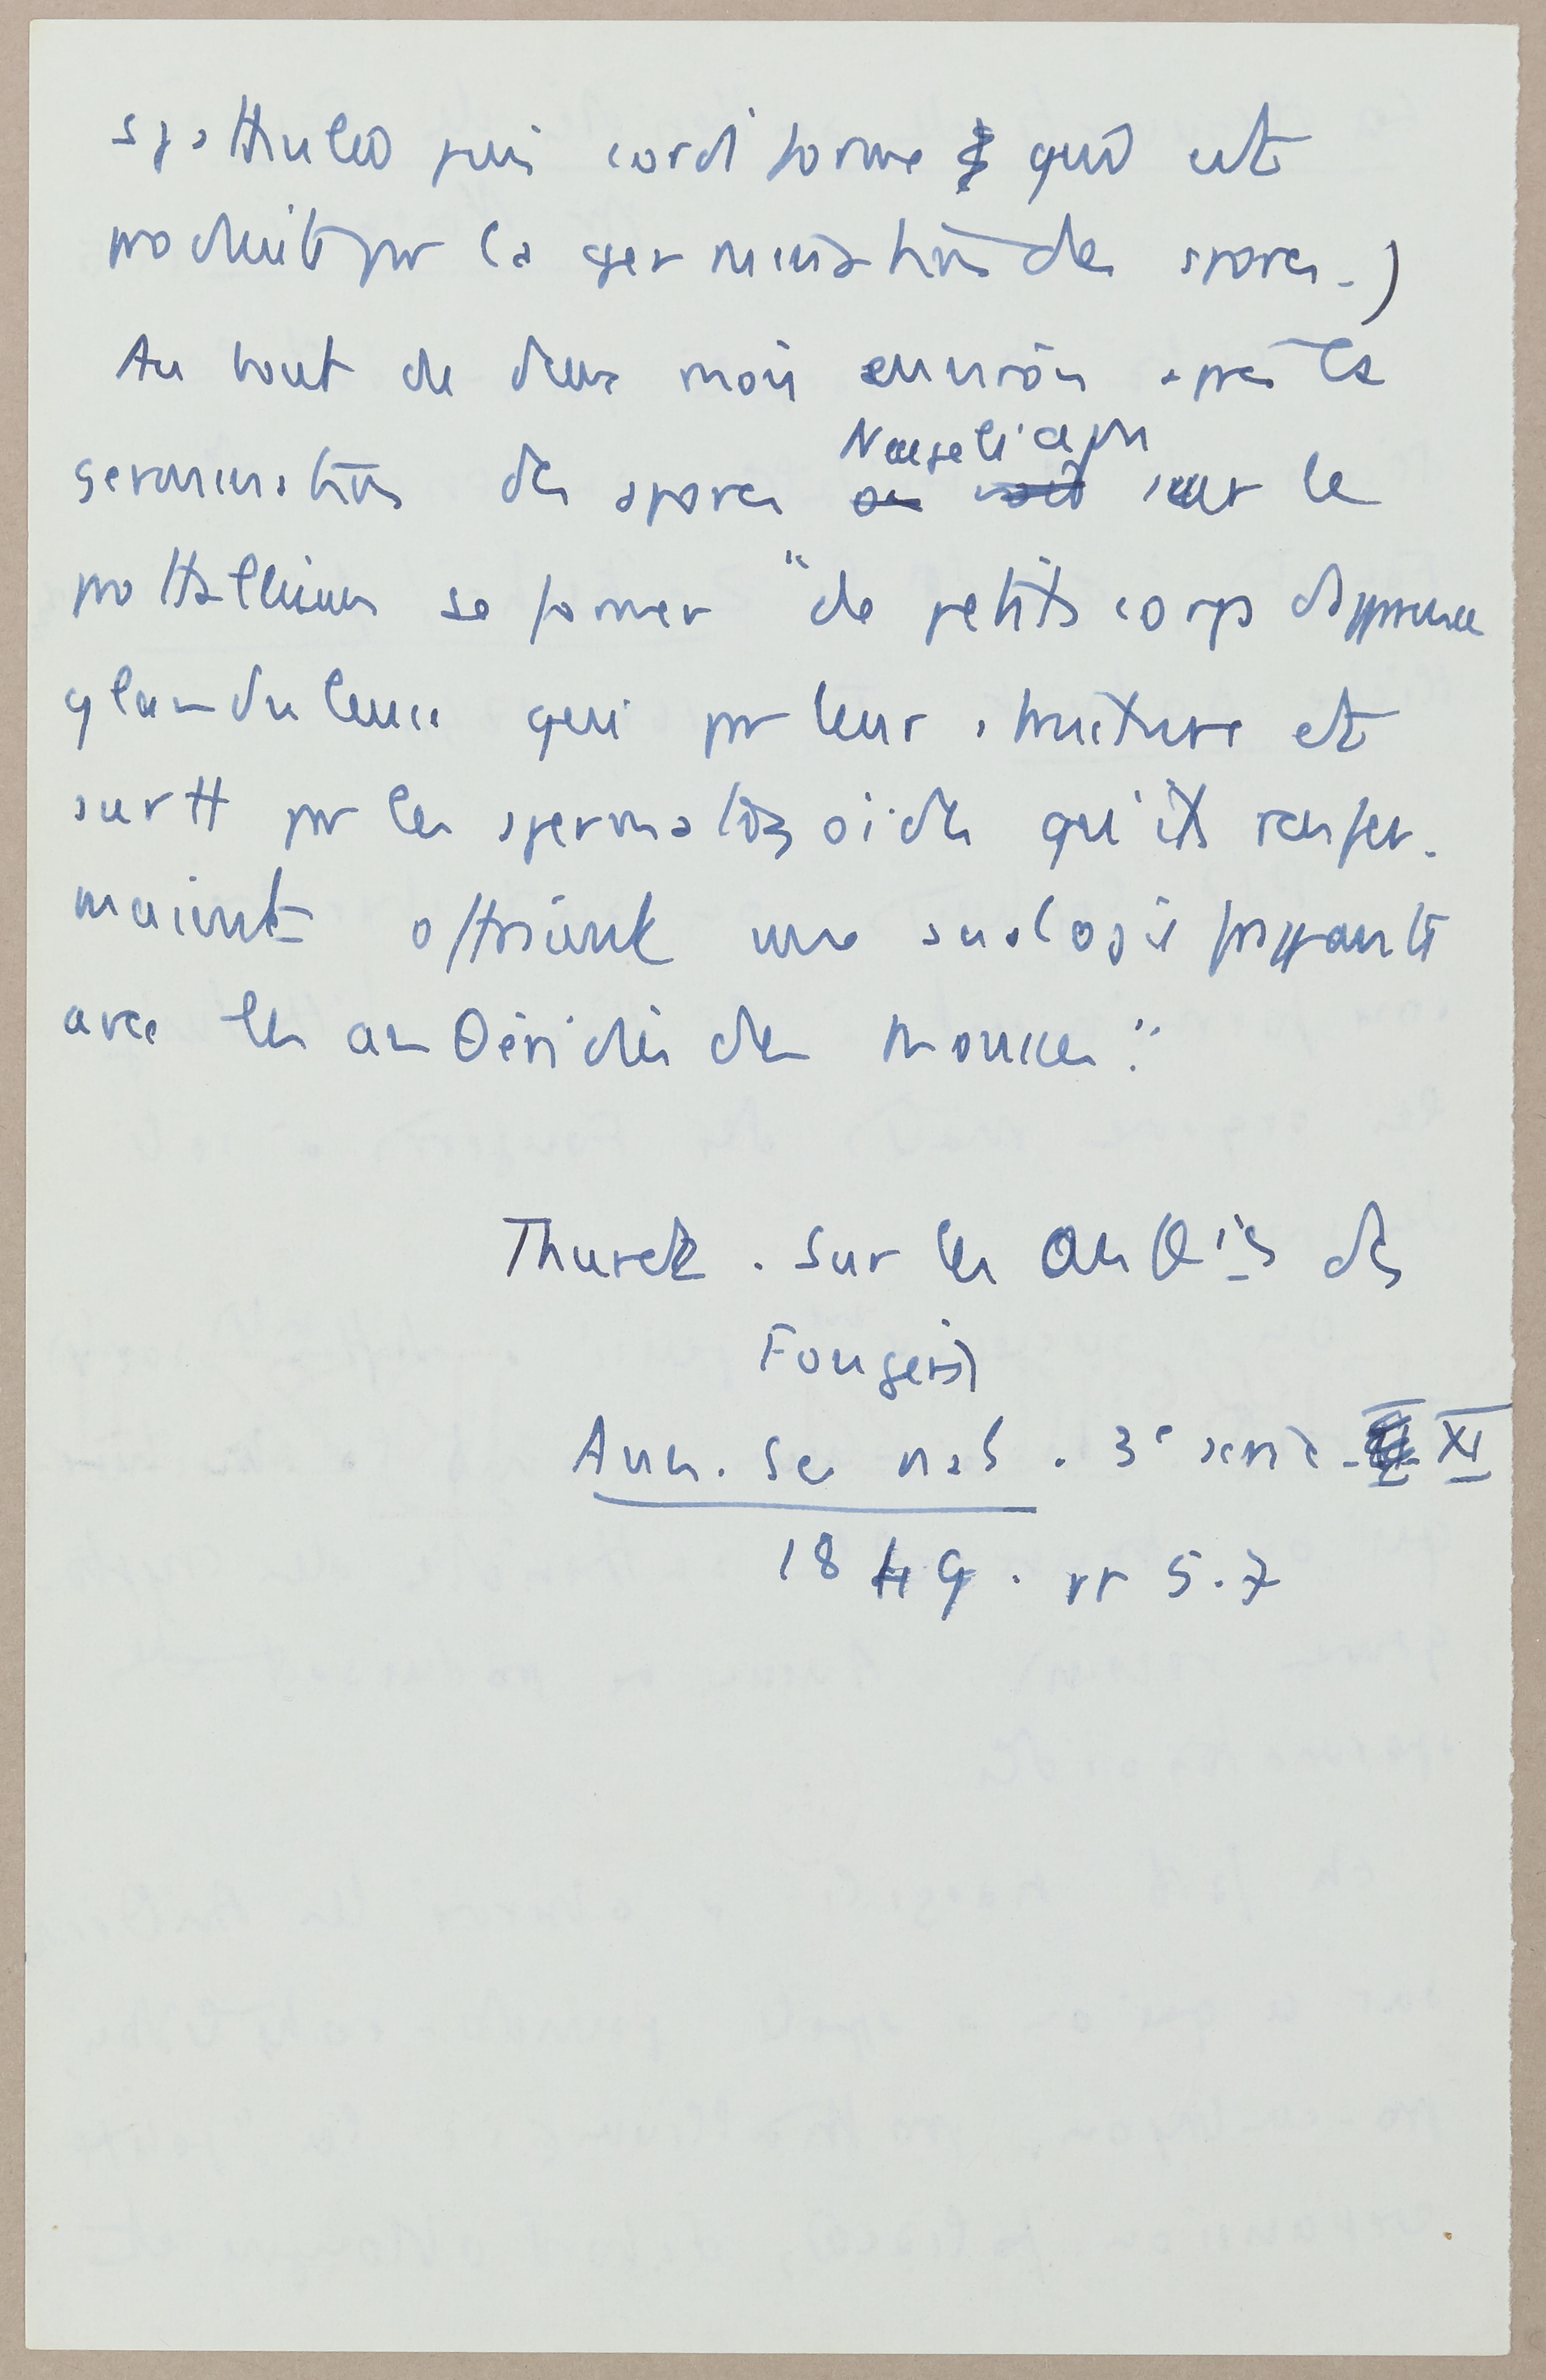 spathulée puis cordiforme qui est
produite par la germination des spores.)
Au bout de deux mois environ après la
Naegeli a vu
germination des spores on voit sur le
prothallium se former "de petits corps d'apparence
glanduleuse qui par leur structure et
surtt par les spermatozoïdes qu'ils renfer-
maient offraient une analogie frappante
avec les anthéridies des mousses."
Thuret. Sur les Anthies des
Fougères
Ann. Sc nat. 3e série. XI
1849. pp 5.7